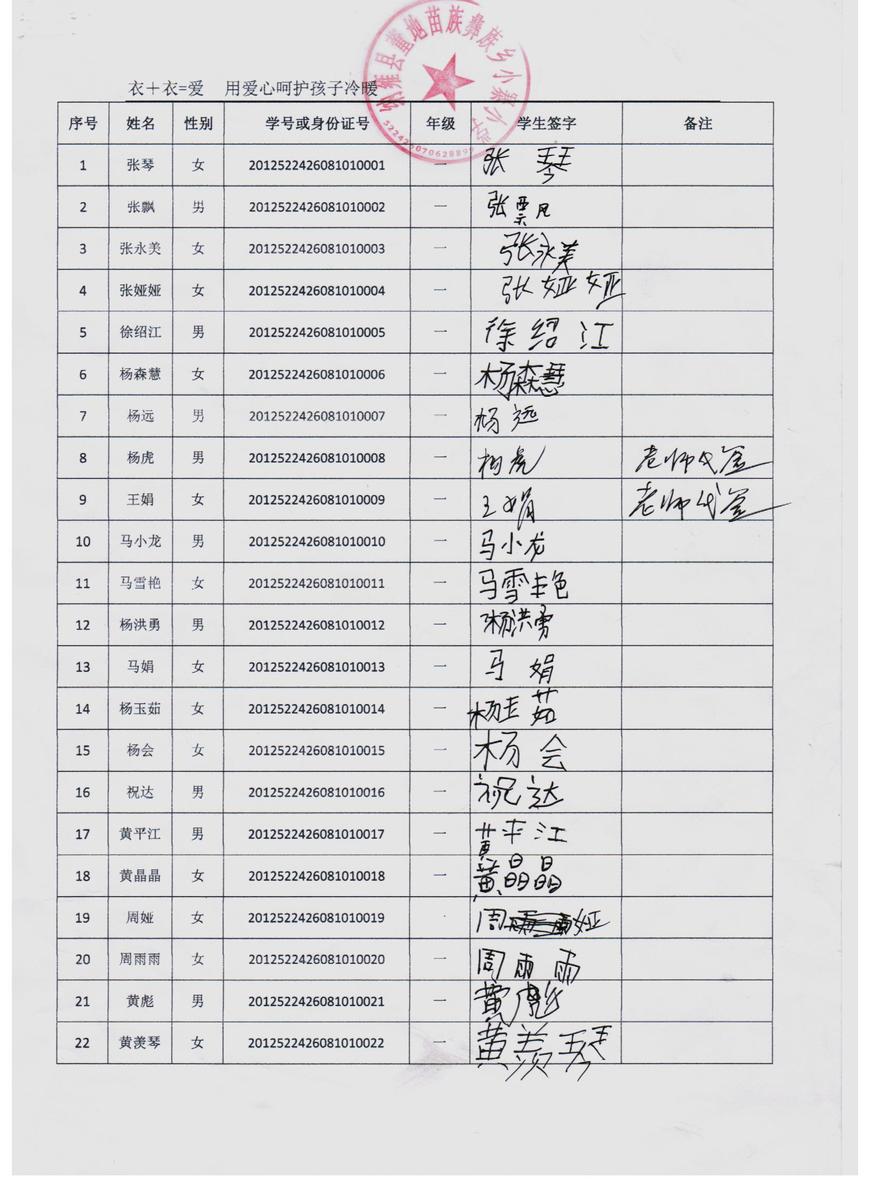 纳雍县董地苗族彝族乡小寨小学
衣+衣=爱 用爱心呵护孩子冷暖
序号 姓名 性别 学号或身份证号 年级 学生签字 备注
1 张琴 女 2012522426081010001 一 张琴
2 张飘 男 2012522426081010002 一 张飘
3 张永美 女 2012522426081010003 一 张永美
4 张娅娅 女 2012522426081010004 一 张娅娅
5 徐绍江 男 2012522426081010005 一 徐绍江
6 杨森慧 女 2012522426081010006 一 杨森慧
7 杨远 男 2012522426081010007 一 杨远
8 杨虎 男 2012522426081010008 一 杨虎 老师代签
9 王娟 女 2012522426081010009 一 王娟 老师代签
10 马小龙 男 2012522426081010010 一 马小龙
11 马雪艳 女 2012522426081010011 一 马雪艳
12 杨洪勇 男 2012522426081010012 一 杨洪勇
13 马娟 女 2012522426081010013 一 马娟
14 杨玉茹 女 2012522426081010014 一 杨玉茹
15 杨会 女 2012522426081010015 一 杨会
16 祝达 男 2012522426081010016 一 祝达
17 黄平江 男 2012522426081010017 一 黄平江
18 黄晶晶 女 2012522426081010018 一 黄晶晶
19 周娅 女 2012522426081010019 周娅
20 周雨雨 女 2012522426081010020 一 周雨雨
21 黄彪 男 2012522426081010021 一 黄彪
22 黄羡琴 女 2012522426081010022 一 黄羡琴